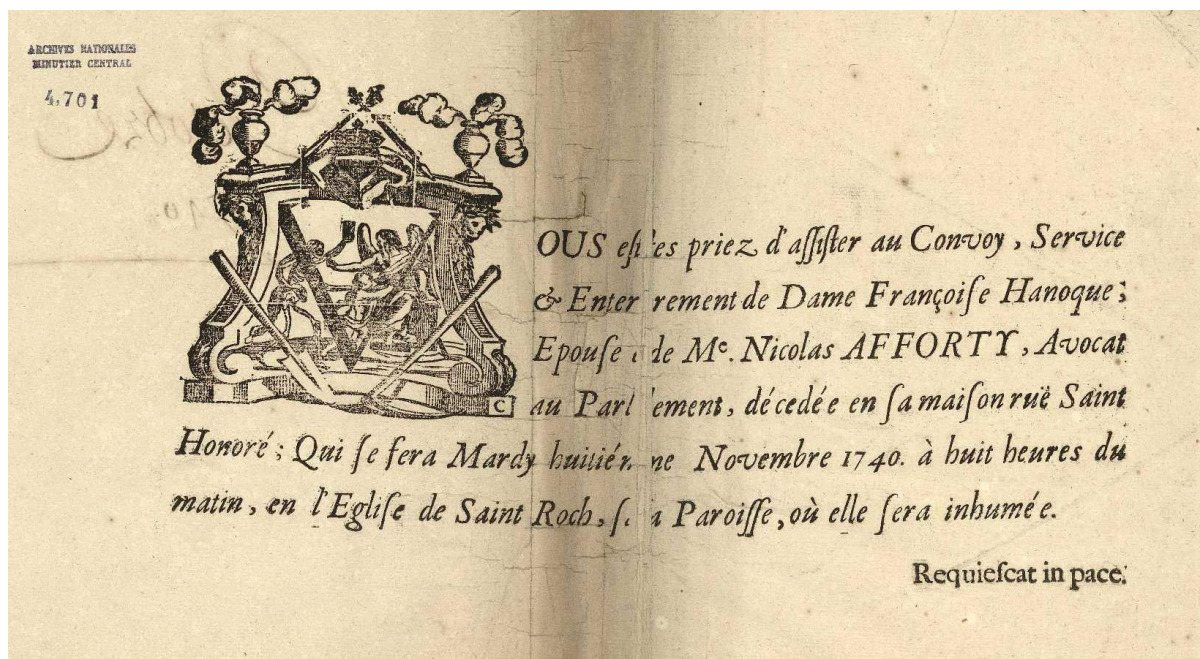 ARCHIVES NATIONALES
MINUTIER CENTRAL
4,701
VOUS estes priez d'assister au Convoy, Service
& Enterrement de Dame Françoise Hanoque;
Epouse de Me. Nicolas AFFORTY, Avocat
au Parlement, décedée en sa maison ruë Saint
Honoré; Qui se fera Mardy huitiéme Novembre 1740. à huit heures du
matin, en l'Eglise de Saint Roch, sa Paroisse, où elle sera inhumée.
Requiescat in pace.
C